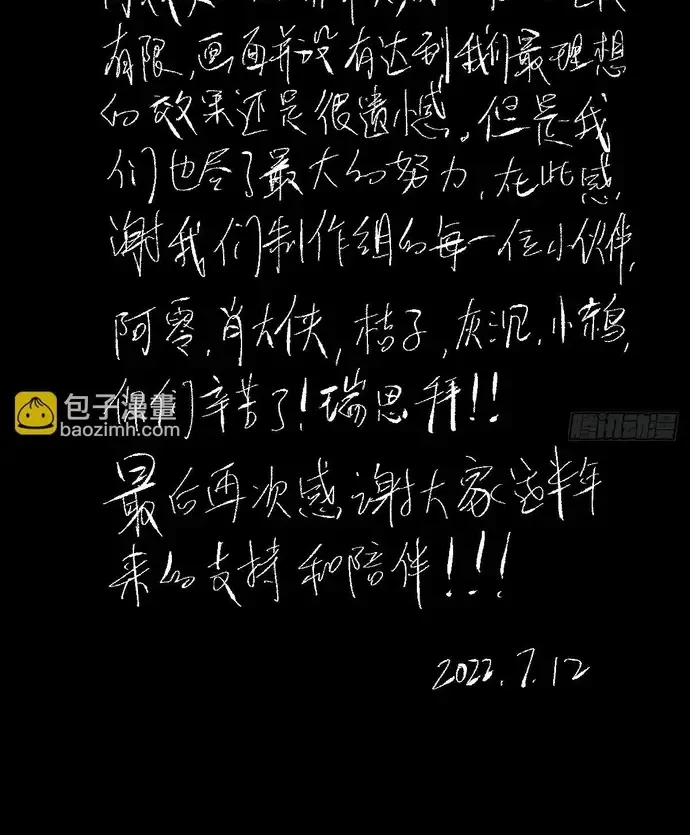 有限,画面并没有达到我们最理想
的效果还是很遗憾。但是我
们也尽了最大的努力,在此感
谢我们制作组的每一位小伙伴,
阿零,肖大侠,桔子,灰沉,小鸦,
你们辛苦了!瑞思拜!!
包子漫畫
baozimh.com
腾讯动漫
最后再次感谢大家这半年
来的支持和陪伴!!!
2022.7.12